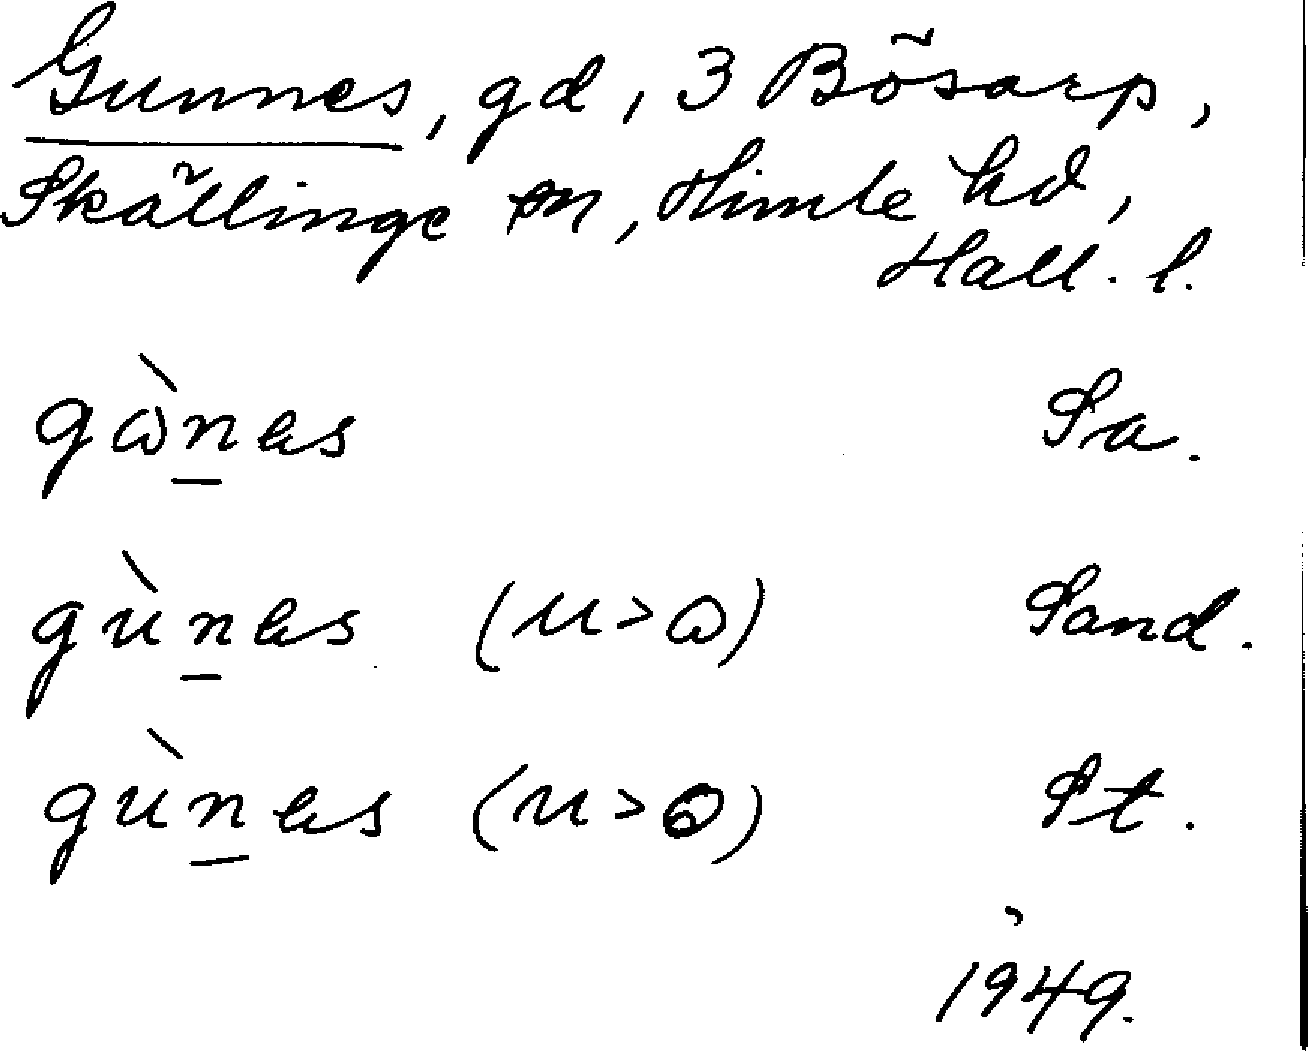 Gunnes, gd, 3 Bösarp,
Skällinge sn, Himle hd,
Hall. l.
gὼn̲es Sa.
gùn̲es (u>ω) Sand.
gùn̲es (u>ɷ) St.
1949.